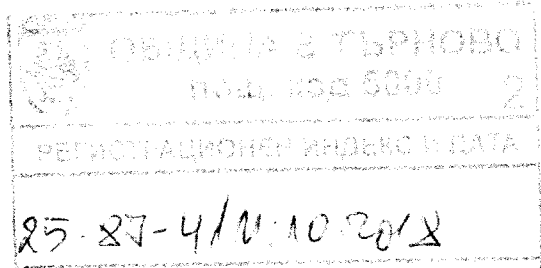 ОБЩИНА В ТЪРНОВО
п.щ. код 5000 2
РЕГИСТРАЦИОНЕН ИНДЕКС И ДАТА
25-87-4/11.10.2018